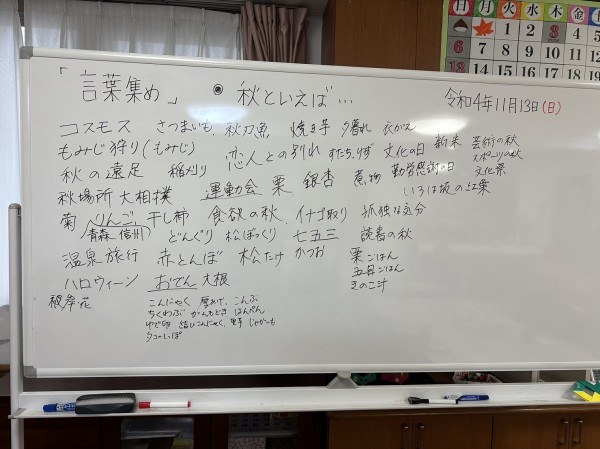 「言葉集め」 ◉ 秋といえば… 令和4年11月13日(日)
コスモス さつまいも、秋刀魚 焼き芋 夕暮れ 衣がえ
もみじ狩り(もみじ) 恋人との別れ すだち、りす 文化の日 新米 芸術の秋
スポーツの秋
秋の遠足 稲刈り 文化祭
秋場所 大相撲 運動会 栗 銀杏 煮物 勤労感謝の日
いろは坂の紅葉
菊 りんご、干し柿 食欲の秋、イナゴ取り 孤独な気分
青森 信州 どんぐり 松ぼっくり 七五三 読書の秋
温泉旅行 赤とんぼ 松たけ かつお 栗ごはん
五目ごはん
ハロウィーン おでん 大根 きのこ汁
彼岸花 こんにゃく 厚あげ、こんぶ
ちくわぶ がんもどき はんぺん
ゆで卵 結びこんにゃく、里芋 じゃがいも
日 月 火 水 木 金
1 2 3 4
6 7 8 9 10 11
13 14 15 16 17 18